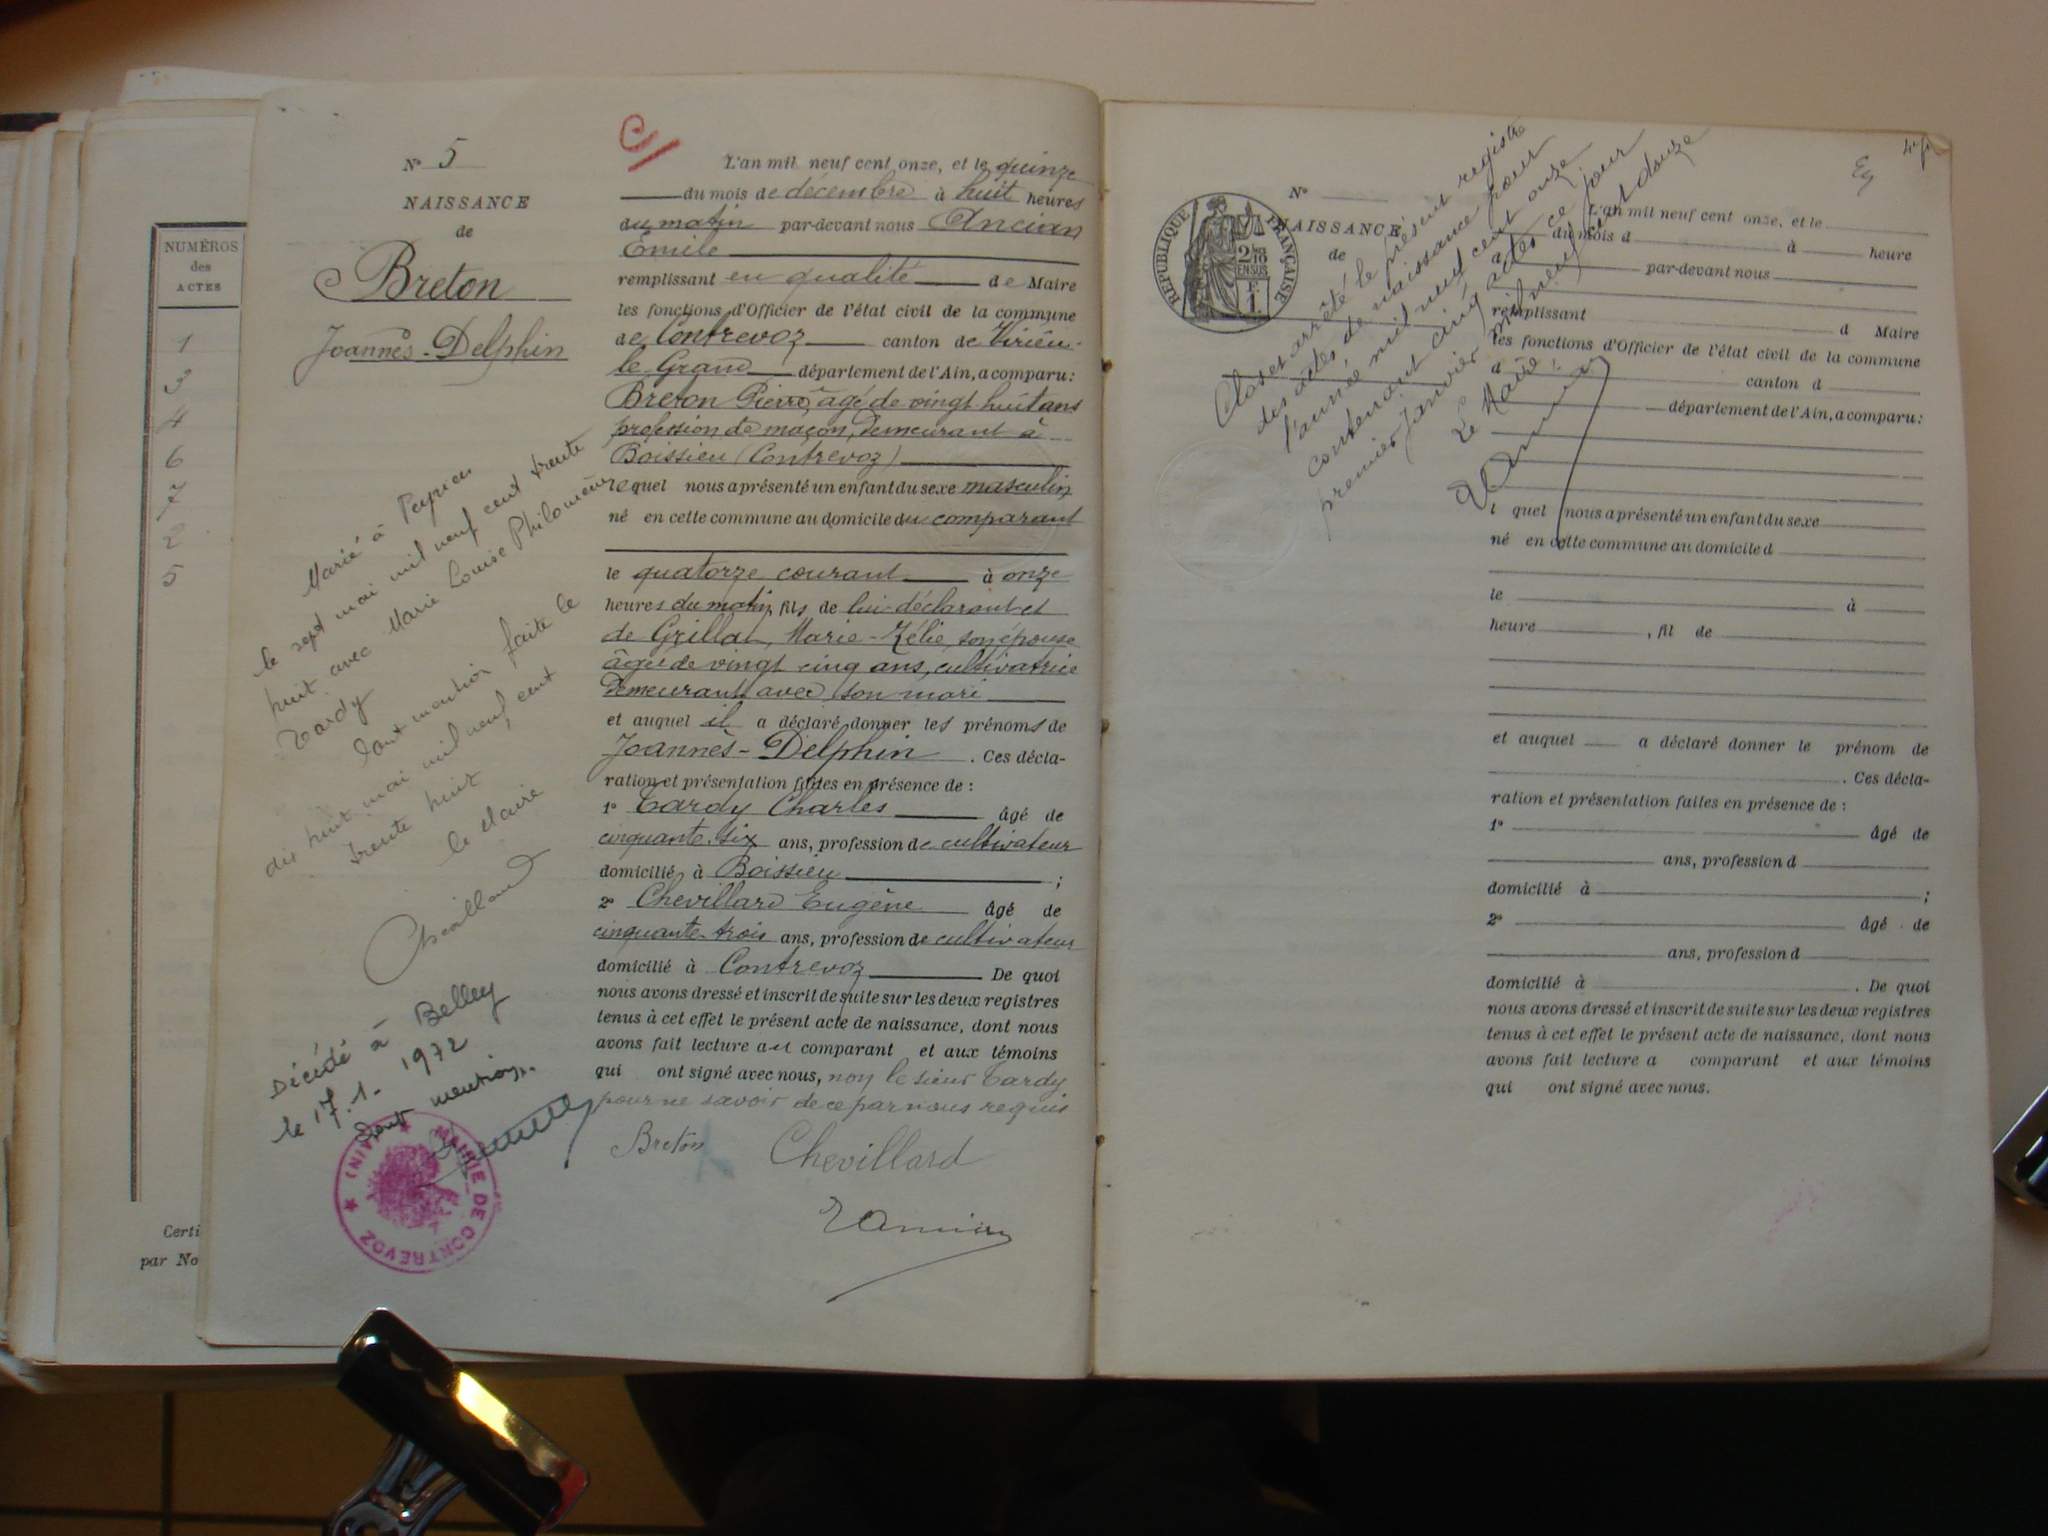 NUMÉROS
des
ACTES
1
3
4
6
7
2
5
Certi
par No
N° 5
NAISSANCE
de
Breton
Joannès-Delphin
Marié à Peyrieu
le sept mai mil neuf cent trente
huit avec Marie Louise Philomène
Tardy
Dont mention faite le
dix huit mai mil neuf cent
trente huit
le Maire
Chevillard
Décédé à Belley
le 17.1.1972
Dont mention.
MAIRIE DE CONTREVOZ ★ (AIN) ★
C/
L'an mil neuf cent onze, et le quinze
du mois de décembre à huit heures
du matin par-devant nous Ancian
Emile
remplissant en qualité de Maire
les fonctions d'Officier de l'état civil de la commune
de Contrevoz canton de Virieu-
le Grand département de l'Ain, a comparu:
Breton Pierre, âgé de vingt-huit ans
profession de maçon, demeurant à
Boissieu (Contrevoz)
lequel nous a présenté un enfant du sexe masculin
né en cette commune au domicile du comparant
le quatorze courant à onze
heures du matin, fils de lui déclarant et
de Grillat, Marie-Zélie, son épouse
âgée de vingt cinq ans, cultivatrice
demeurant avec son mari
et auquel il a déclaré donner les prénoms de
Joannès-Delphin. Ces décla-
ration et présentation faites en présence de :
1° Tardy Charles âgé de
cinquante-six ans, profession de cultivateur
domicilié à Boissieu ;
2° Chevillard Eugène âgé de
cinquante-trois ans, profession de cultivateur
domicilié à Contrevoz De quoi
nous avons dressé et inscrit de suite sur les deux registres
tenus à cet effet le présent acte de naissance, dont nous
avons fait lecture au comparant et aux témoins
qui ont signé avec nous, non le sieur Tardy
pour ne savoir de ce par nous requis
Breton Chevillard
EAncian
RÉPUBLIQUE FRANÇAISE
N°
NAISSANCE
de
Clos et arrêté le présent registre
des actes de naissance pour
l'année mil neuf cent onze
contenant cinq actes ce jour
premier Janvier mil neuf cent douze
Le Maire :
EAncian
L'an mil neuf cent onze, et le
du mois d à heure
par-devant nous
remplissant d Maire
les fonctions d'Officier de l'état civil de la commune
d canton d
département de l'Ain, a comparu:
l quel nous a présenté un enfant du sexe
né en cette commune au domicile d
le à
heure , fil de
et auquel a déclaré donner le prénom de
. Ces décla-
ration et présentation faites en présence de :
1° âgé de
ans, profession d
domicilié à ;
2° âgé de
ans, profession d
domicilié à . De quoi
nous avons dressé et inscrit de suite sur les deux registres
tenus à cet effet le présent acte de naissance, dont nous
avons fait lecture a comparant et aux témoins
qui ont signé avec nous.